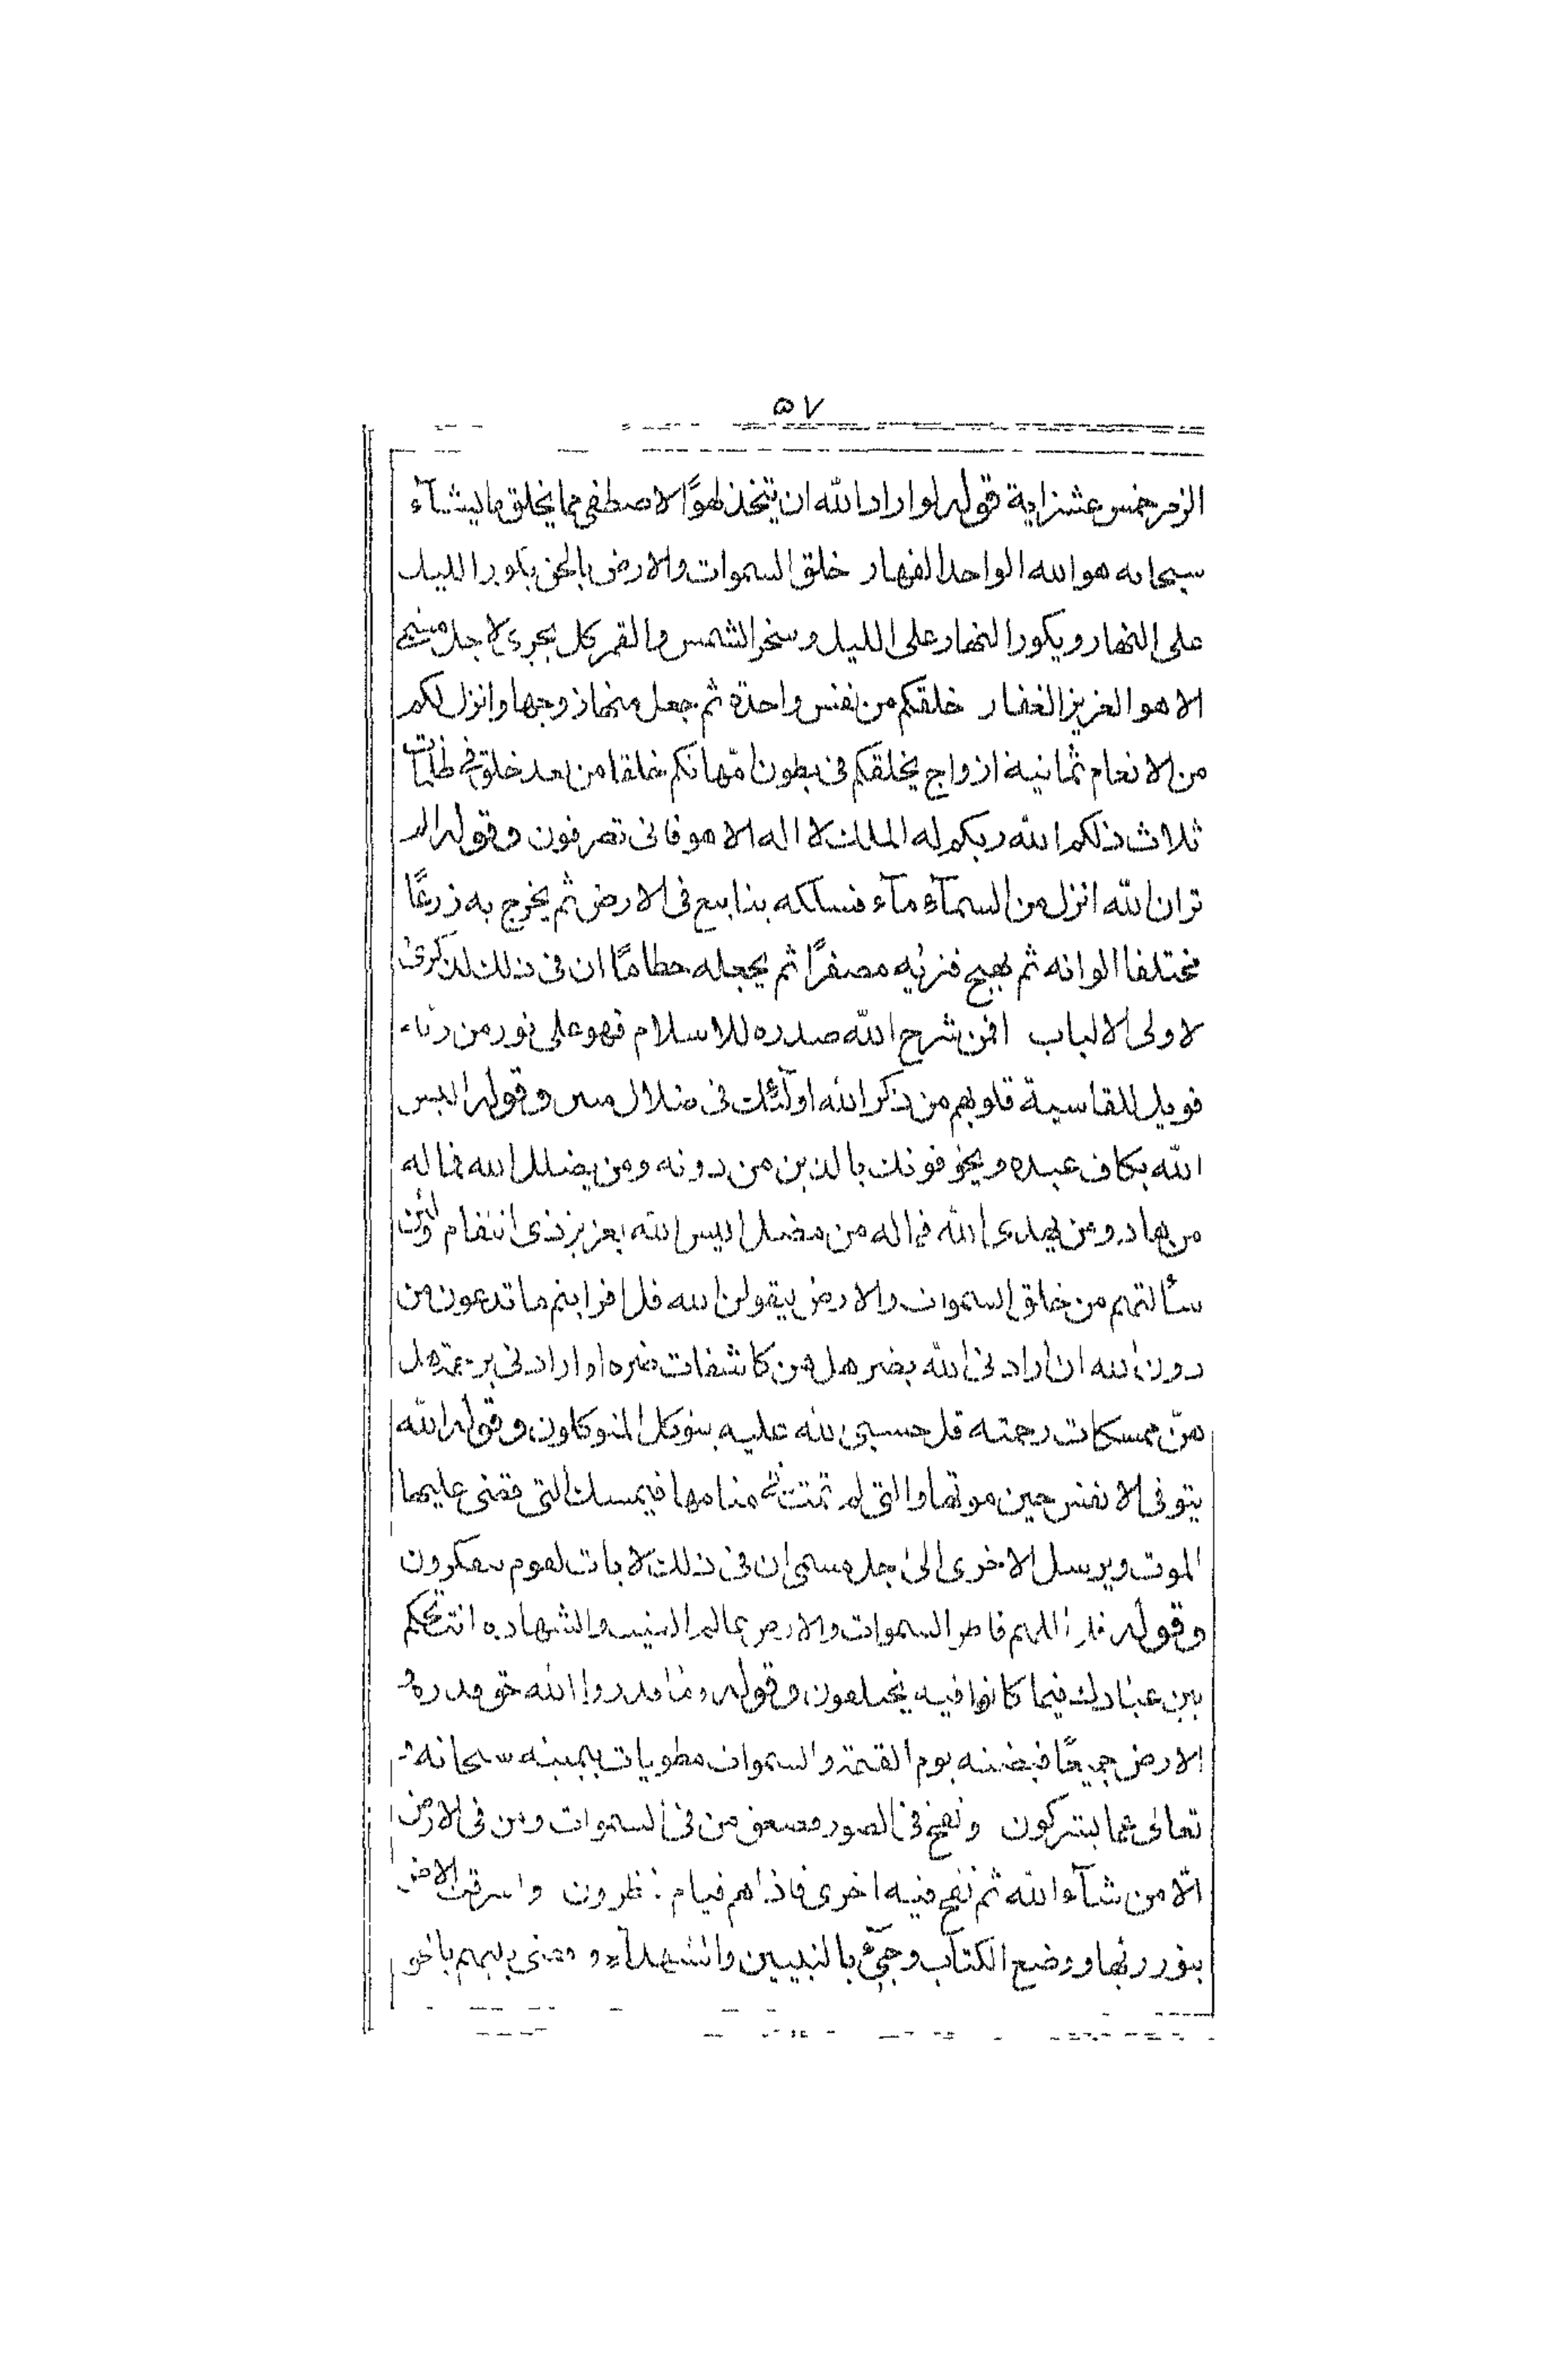 ٥٧
الزمر خمس عشر اية قوله لو اراد الله ان يتخذ لهوًا لاصطفى مما يخلق ما يشآء
سبحانه هو الله الواحد القهار خلق السموات والارض بالحق يكور الليل
على النهار ويكور النهار على الليل وسخر الشمس والقمر كل يجرى لاجل مسمى
الا هو العزيز الغفار خلقكم من نفس واحدة ثم جعل منها زوجها وانزل لكم
من الانعام ثمانية ازواج يخلقكم فى بطون امّهاتكم خلقا من بعد خلق فى ظلمات
ثلاث ذلكم الله ربكم له الملك لا اله الا هو فانى تصرفون وقوله الم
تر ان الله انزل من السمآء مآء فسلكه ينابيع فى الارض ثم يخرج به زرعًا
مختلفا الوانه ثم يهيج فتريه مصفرًا ثم يجعله حطامًا ان فى ذلك لذكرىٰ
لاولى الالباب افمن شرح الله صدره للاسلام فهو على نور من ربّه
فويل للقاسية قلوبهم من ذكر الله اولٓئك فى ضلال مبين وقوله اليس
الله بكاف عبده ويخوفونك بالذين من دونه ومن يضلل الله فما له
من هاد ومن يهدى الله فما له من مضل اليس الله بعزيز ذى انتقام ولئن
سألتهم من خلق السموات والارض ليقولن الله قل افرايتم ما تدعون من
دون الله ان ارادنى الله بضر هل هن كاشفات ضره او ارادنى برحمة هل
هنّ ممسكات رحمته قل حسبى الله عليه يتوكل المتوكلون وقوله الله
يتوفى الانفس حين موتها والتى لم تمت فى منامها فيمسك التى قضى عليها
الموت ويرسل الاخرى الىٰ اجل مسمى ان فى ذلك لايات لقوم يتفكرون
وقوله قل اللهم فاطر السموات والارض عالم الغيب والشهادة انت تحكم
بين عبادك فيما كانوا فيه يختلفون وقوله وما قدروا الله حق قدره و
الارض جميعًا قبضته يوم القيمة والسموات مطويات بيمينه سبحانه و
تعالى عما يشركون ونفخ فى الصور فصعق من فى السموات ومن فى الارض
الّا من شآء الله ثم نفخ فيه اخرى فاذا هم قيام ينظرون واشرقت الارض
بنور ربها ووضع الكتاب وجىء بالنبيين والشهدآء وقضى بينهم بالحق